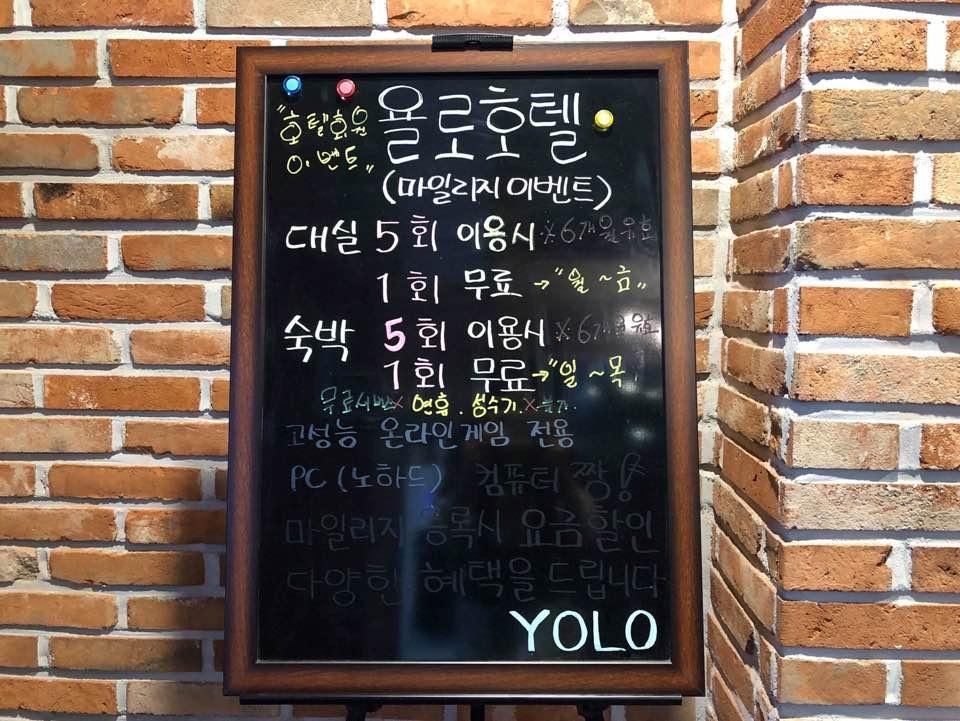 "호텔회원
이벤트"
욜로호텔
(마일리지 이벤트)
대실 5회 이용시 ※6개월유효
1회 무료 → "월 ~ 금"
숙박 5회 이용시 ※6개월
1회 무료 → "일 ~ 목"
무료시 × 연휴 . 성수기 × 불가.
고성능 온라인게임 전용
PC (노하드) 컴퓨터 짱!
마일리지 등록시 요금할인
다양한 혜택을 드립니다
YOLO